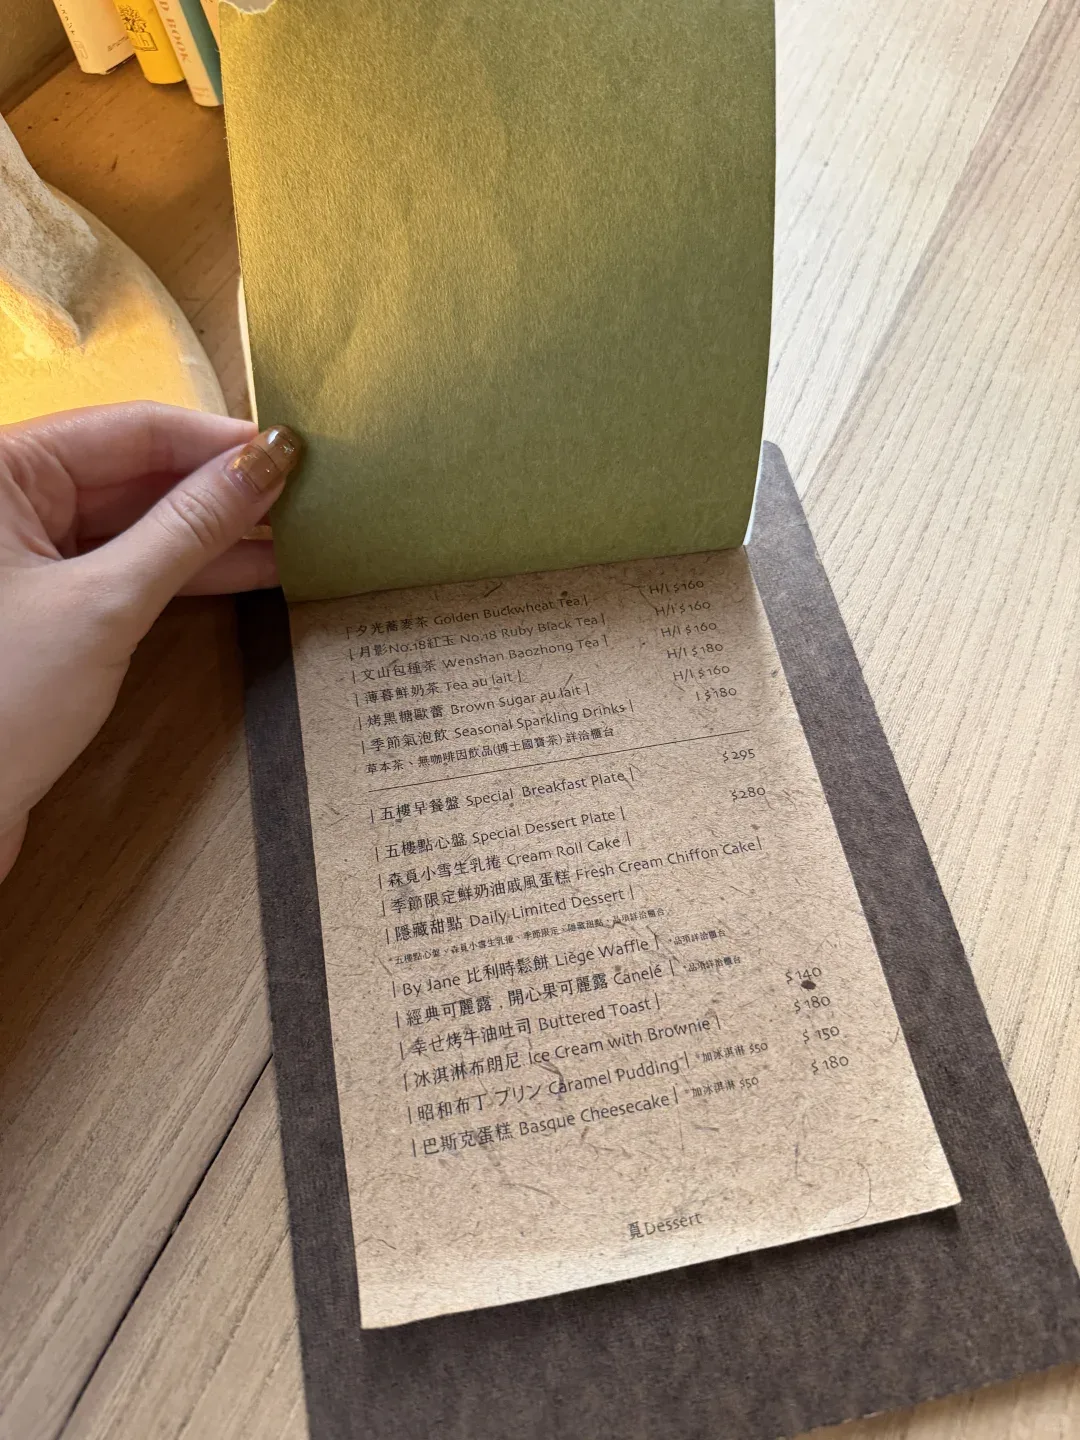 D BOOK
|夕光蕎麥茶 Golden Buckwheat Tea| H/I $160
|月影No.18紅玉 No.18 Ruby Black Tea| H/I $160
|文山包種茶 Wenshan Baozhong Tea| H/I $160
|薄暮鮮奶茶 Tea au lait| H/I $180
|烤黑糖歐蕾 Brown Sugar au lait| H/I $160
|季節氣泡飲 Seasonal Sparkling Drinks| I $180
草本茶、無咖啡因飲品(博士國寶茶) 詳洽櫃台
|五樓早餐盤 Special Breakfast Plate| $295
|五樓點心盤 Special Dessert Plate| $280
|森覓小雪生乳捲 Cream Roll Cake|
|季節限定鮮奶油戚風蛋糕 Fresh Cream Chiffon Cake|
|隱藏甜點 Daily Limited Dessert|
*五樓點心盤、森覓小雪生乳捲、季節限定、隱藏甜點，品項詳洽櫃台
|By Jane 比利時鬆餅 Liège Waffle| *品項詳洽櫃台
|經典可麗露．開心果可麗露 Canelé| *品項詳洽櫃台
|幸せ烤牛油吐司 Buttered Toast| $140
|冰淇淋布朗尼 Ice Cream with Brownie| $180
|昭和布丁 プリン Caramel Pudding| *加冰淇淋 $50 $150
|巴斯克蛋糕 Basque Cheesecake| *加冰淇淋 $50 $180
覓Dessert